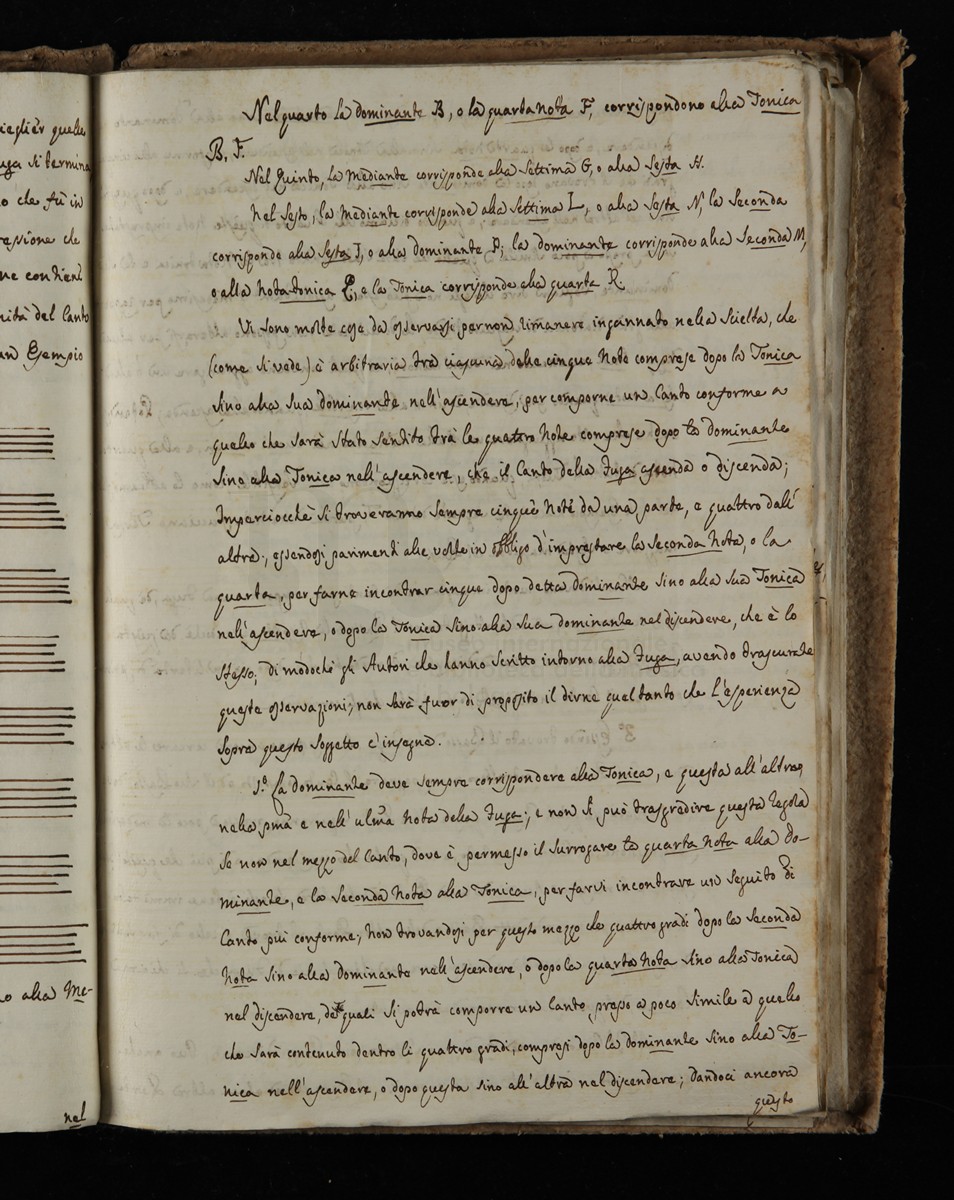 ieglier quella
uga si termina
o che fù in
ressione che
ne contien
nità del Canto
un Esempio
o alla Me-
nel
Nel quarto la dominante B, o la quarta nota F, corrispondono alla Tonica
B, F.
Nel Quinto, la Mediante corrisponde alla Settima G, o alla Sesta H.
Nel Sesto, la Mediante corrisponde alla Settima L, o alla Sesta N; la Seconda
corrisponde alla Sesta I, o alla dominante P; la dominante corrisponde alla Seconda M,
o alla nota tonica Q; e la Tonica corrisponde alla quarta R.
Vi sono molte cose da osservarsi per non rimanere ingannato nella Scielta, che
(come si vede) è arbitraria trà ciascuna delle cinque Note comprese dopo la Tonica
sino alla sua dominante nell'ascendere, per comporne un Canto conforme a
quello che sarà stato sentito trà le quattro Note comprese dopo la dominante
sino alla Tonica nell'ascendere, che il Canto della Fuga ascenda o discenda;
Imperciocchè si troveranno sempre cinque Note da una parte, e quattro dall'
altra; essendosi parimenti alle volte in obbligo d'imprestare la Seconda Nota, o la
quarta, per farne incontrar cinque dopo detta dominante sino alla sua Tonica
nell'ascendere, o dopo la Tonica sino alla sua dominante nel discendere, che è lo
stesso; di modochè gli Autori che hanno scritto intorno alla Fuga, avendo trascurate
queste osservazioni; non sarà fuor di proposito il dirne quel tanto che l'esperienza
sopra questo soggetto c'insegna.
1.º La dominante deve sempre corrispondere alla Tonica, e questa all'altra,
nella pma e nell'ulma Nota della Fuga; e non si può trasgredire questa regola
se non nel mezzo del Canto, dove è permesso il surrogare la quarta Nota alla do-
minante, e la Seconda Nota alla Tonica, per farvi incontrare un seguito di
Canto più conforme; non trovandosi per questo mezzo che quattro gradi dopo la Seconda
Nota sino alla dominante nell'ascendere, o dopo la quarta Nota sino alla Tonica
nel discendere, de quali si potrà comporre un Canto presso a poco simile a quello
che sarà contenuto dentro li quattro gradi, compresi dopo la dominante sino alla To-
nica nell'ascendere, o dopo questa sino all'altra nel discendere; dandoci ancora
questo